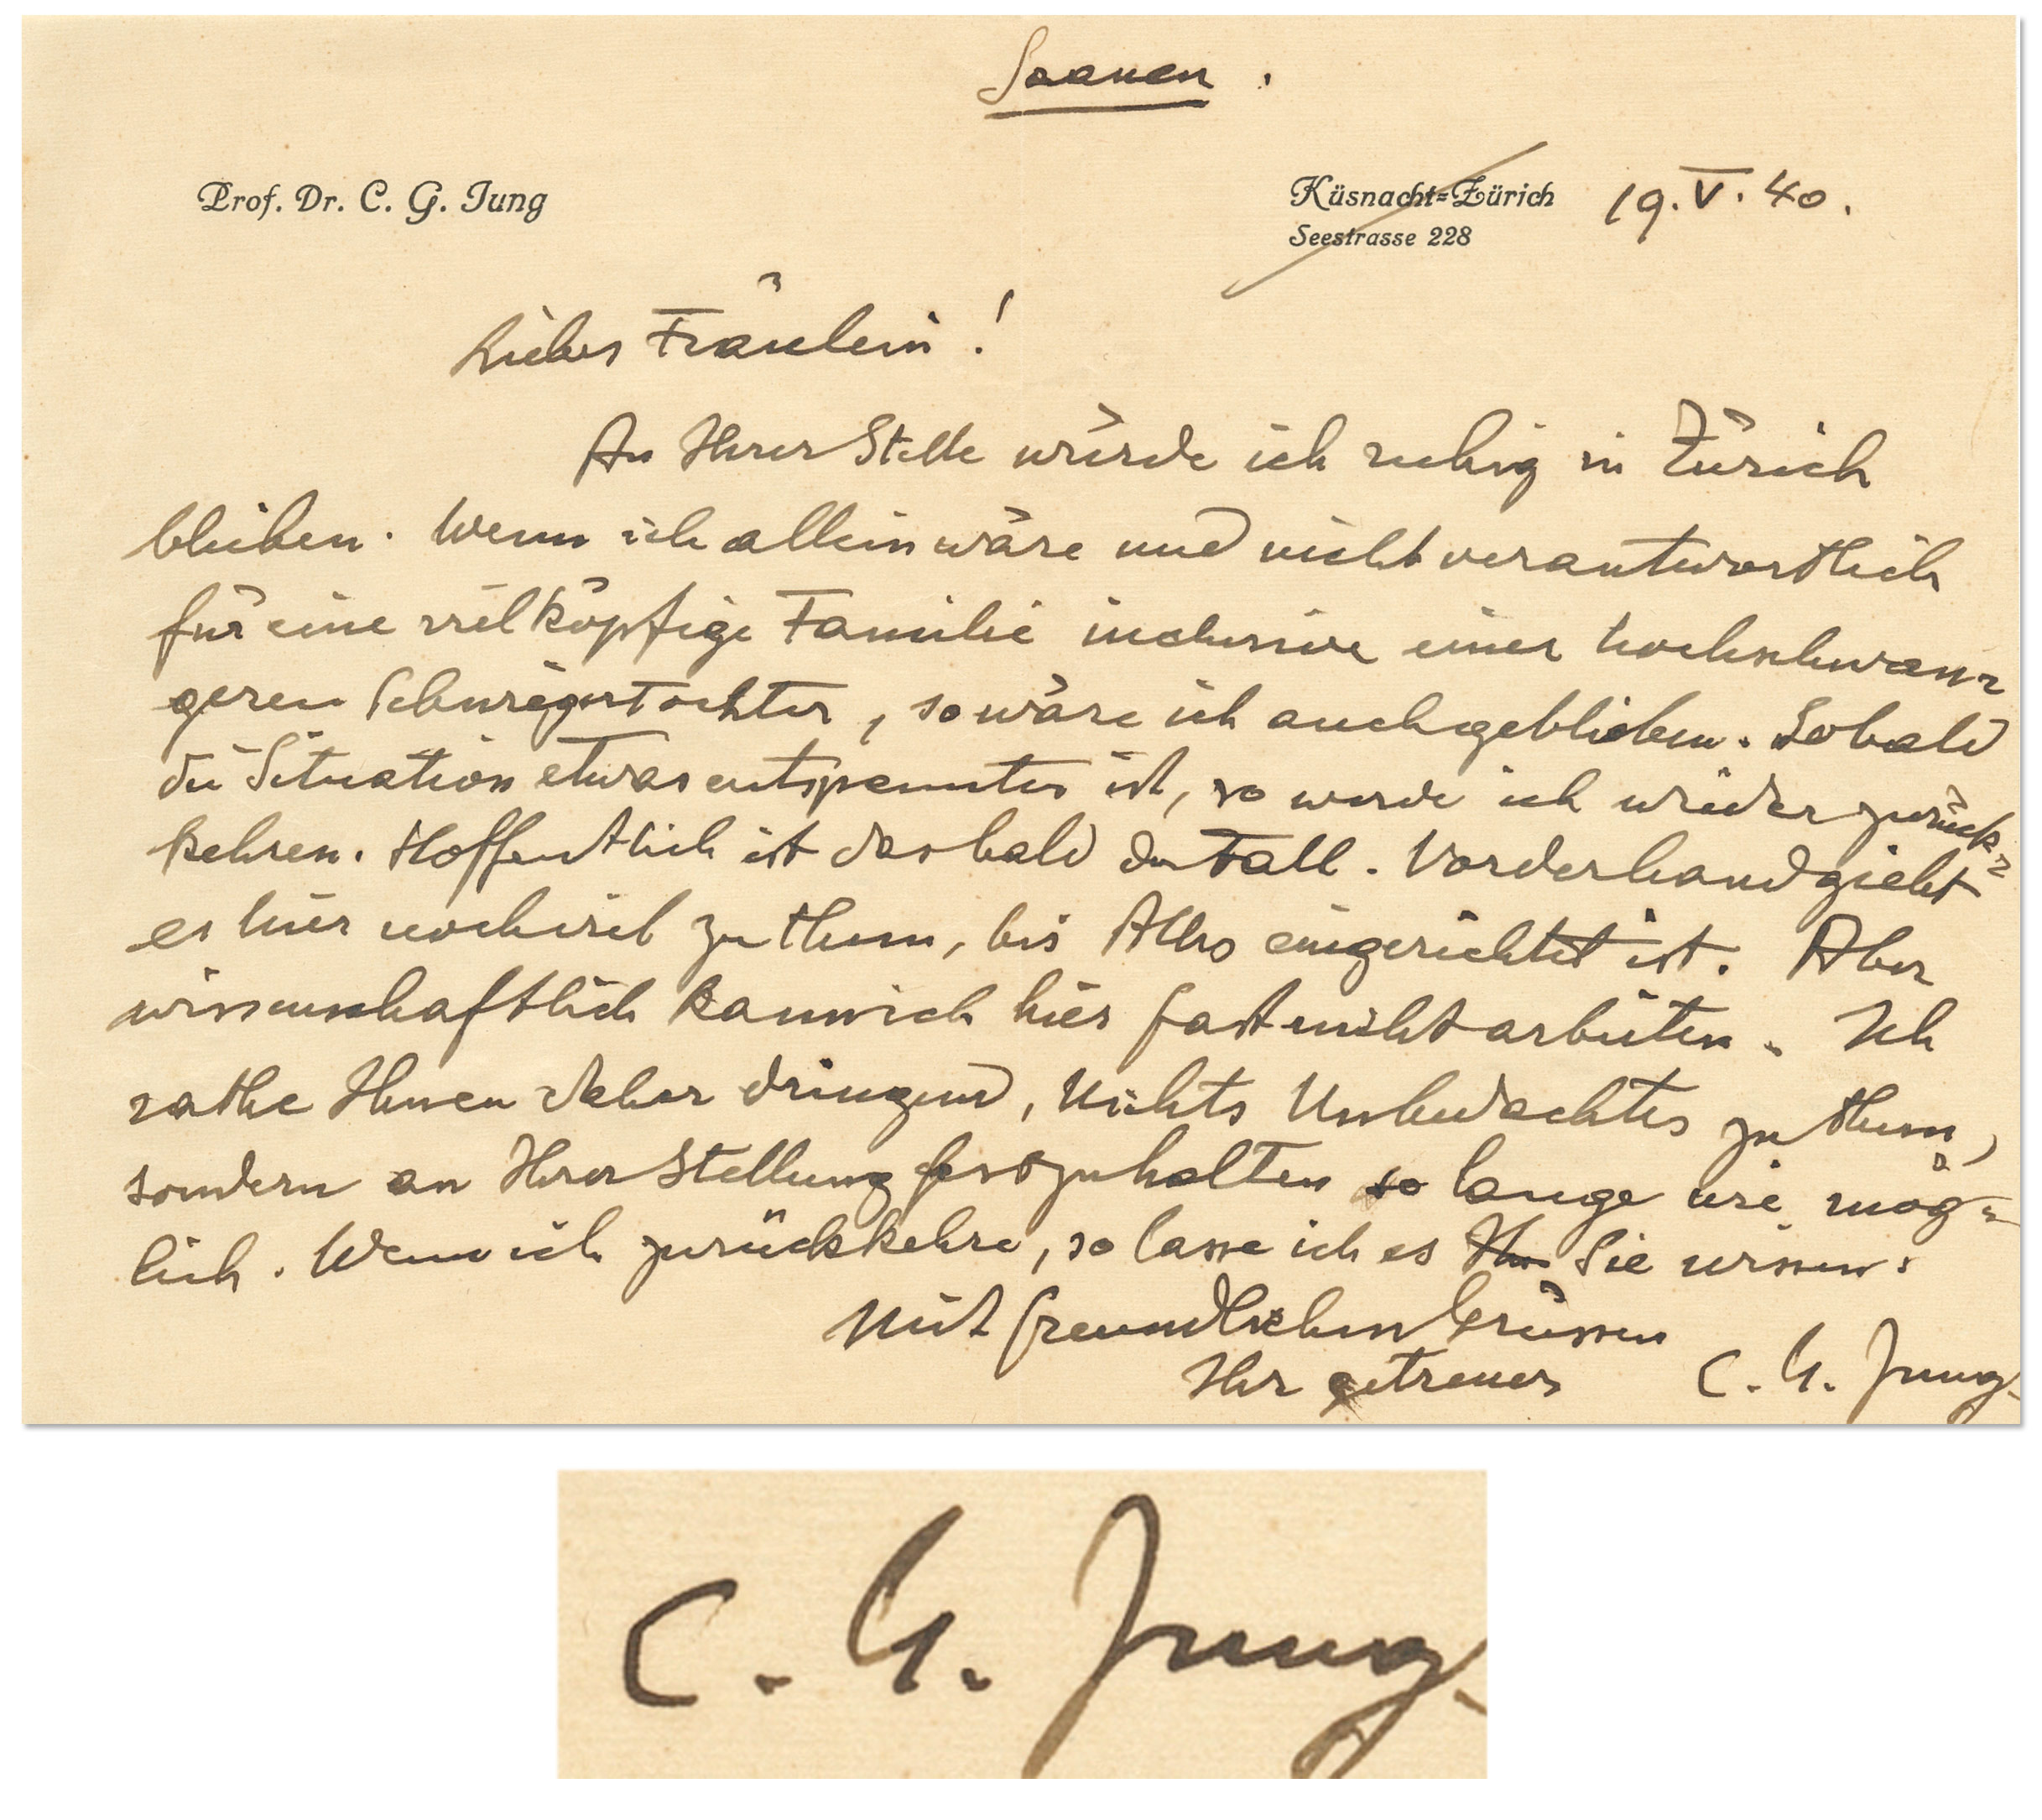 Saanen.
Prof. Dr. C. G. Jung
Küsnacht=Zürich 19. V. 40.
Seestrasse 228
Liebes Fräulein!
An Ihrer Stelle würde ich ruhig in Zürich
bleiben. Wenn ich allein wäre und nicht verantwortlich
für eine vielköpfige Familie inclusive einer hochschwan=
geren Schwiegertochter, so wäre ich auch geblieben. Sobald
die Situation etwas entspannter ist, so werde ich wieder zurück=
kehren. Hoffentlich ist das bald der Fall. Vorderhand giebt
es hier noch viel zu thun, bis Alles eingerichtet ist. Aber
wissenschaftlich kann ich hier fast nicht arbeiten. Ich
rathe Ihnen daher dringend, Nichts Unbedachtes zu thun,
sondern an Ihrer Stellung festzuhalten so lange wie mög=
lich. Wenn ich zurückkehre, so lasse ich es Ihn Sie wissen.
Mit freundlichen Grüssen
Ihr getreuer C. G. Jung
C. G. Jung